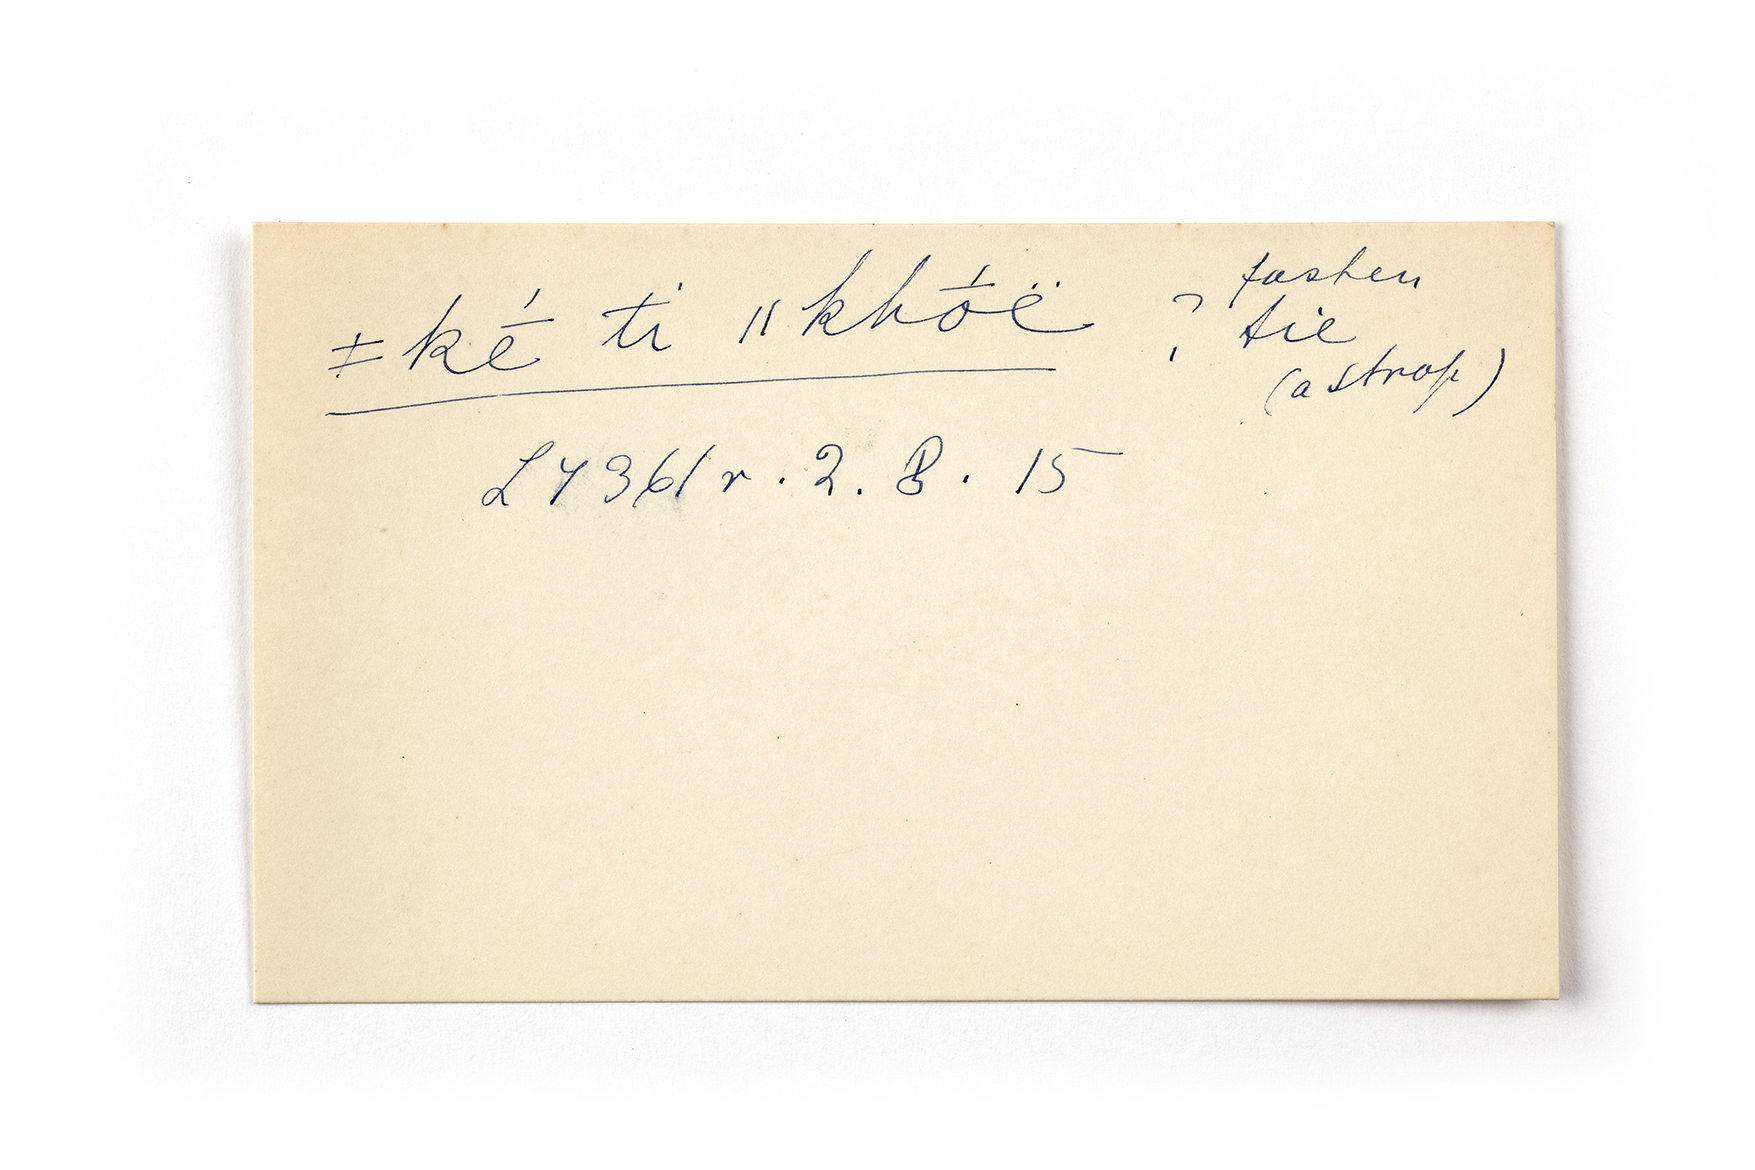 ǂkḗ ti ǁkhṓë ? fasten
tie
(a strap)
L 7361 r. 2. B. 15